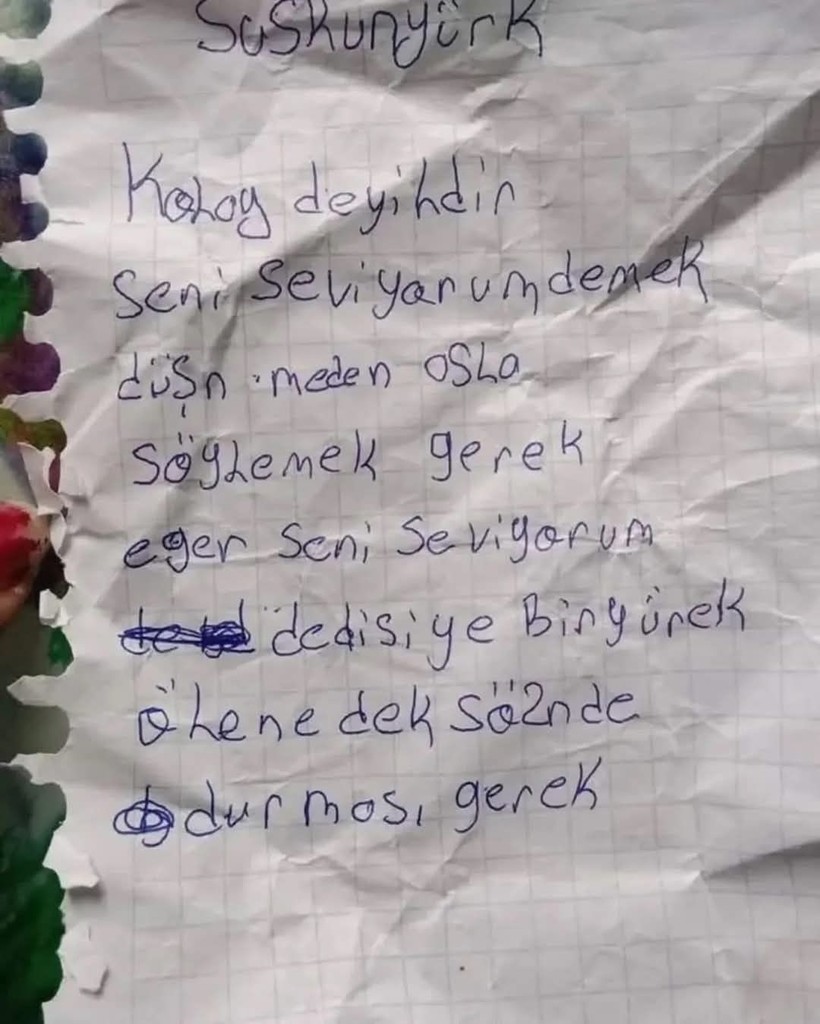 Suskunyürk
Kolay deyildir
Seni Seviyorumdemek
düşn meden osla
söylemek gerek
eger Seni Seviyorum
dedisiye Biryürek
ölene dek söznde
durması gerek